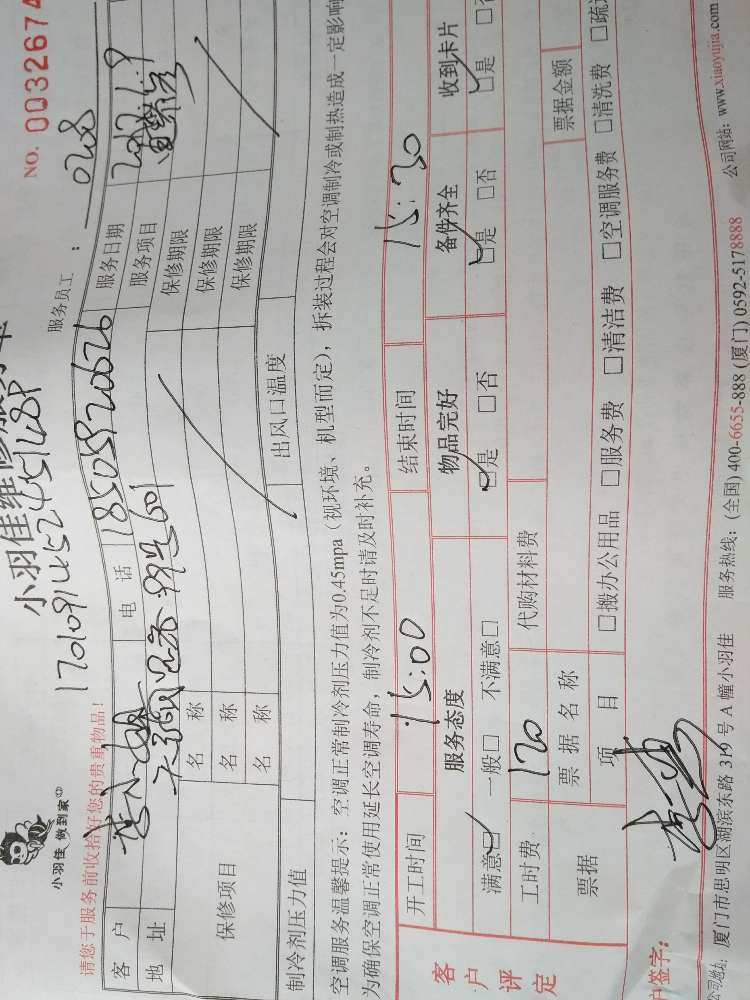 小羽佳 做到家
小羽佳维修服务单
NO. 0032674
请您于服务前收拾好您的贵重物品!
服务员工 : 0208
客户 电话 18505920626 服务日期 2017.1.9
地址 601 服务项目
保修项目 名称 保修期限
名称 保修期限
名称 保修期限
制冷剂压力值 出风口温度
空调服务温馨提示: 空调正常制冷剂压力值为0.45mpa (视环境、机型而定), 拆装过程会对空调制冷或制热造成一定影响
为确保空调正常使用延长空调寿命, 制冷剂不足时请及时补充。
客户评定
开工时间 15:00 结束时间 15:30
服务态度 物品完好 备件齐全 收到卡片
满意☑ 一般□ 不满意□ ☑是 □否 ☑是 □否 ☑是 □否
工时费 120 代购材料费
票据 票据名称 票据金额
项目 □搬办公用品 □服务费 □清洁费 □空调服务费 □清洗费 □疏
签字:
公司地址: 厦门市思明区湖滨东路 319 号 A 幢小羽佳 服务热线: (全国) 400-6655-888 (厦门) 0592-5178888 公司网站: www.xiaoyujia.com